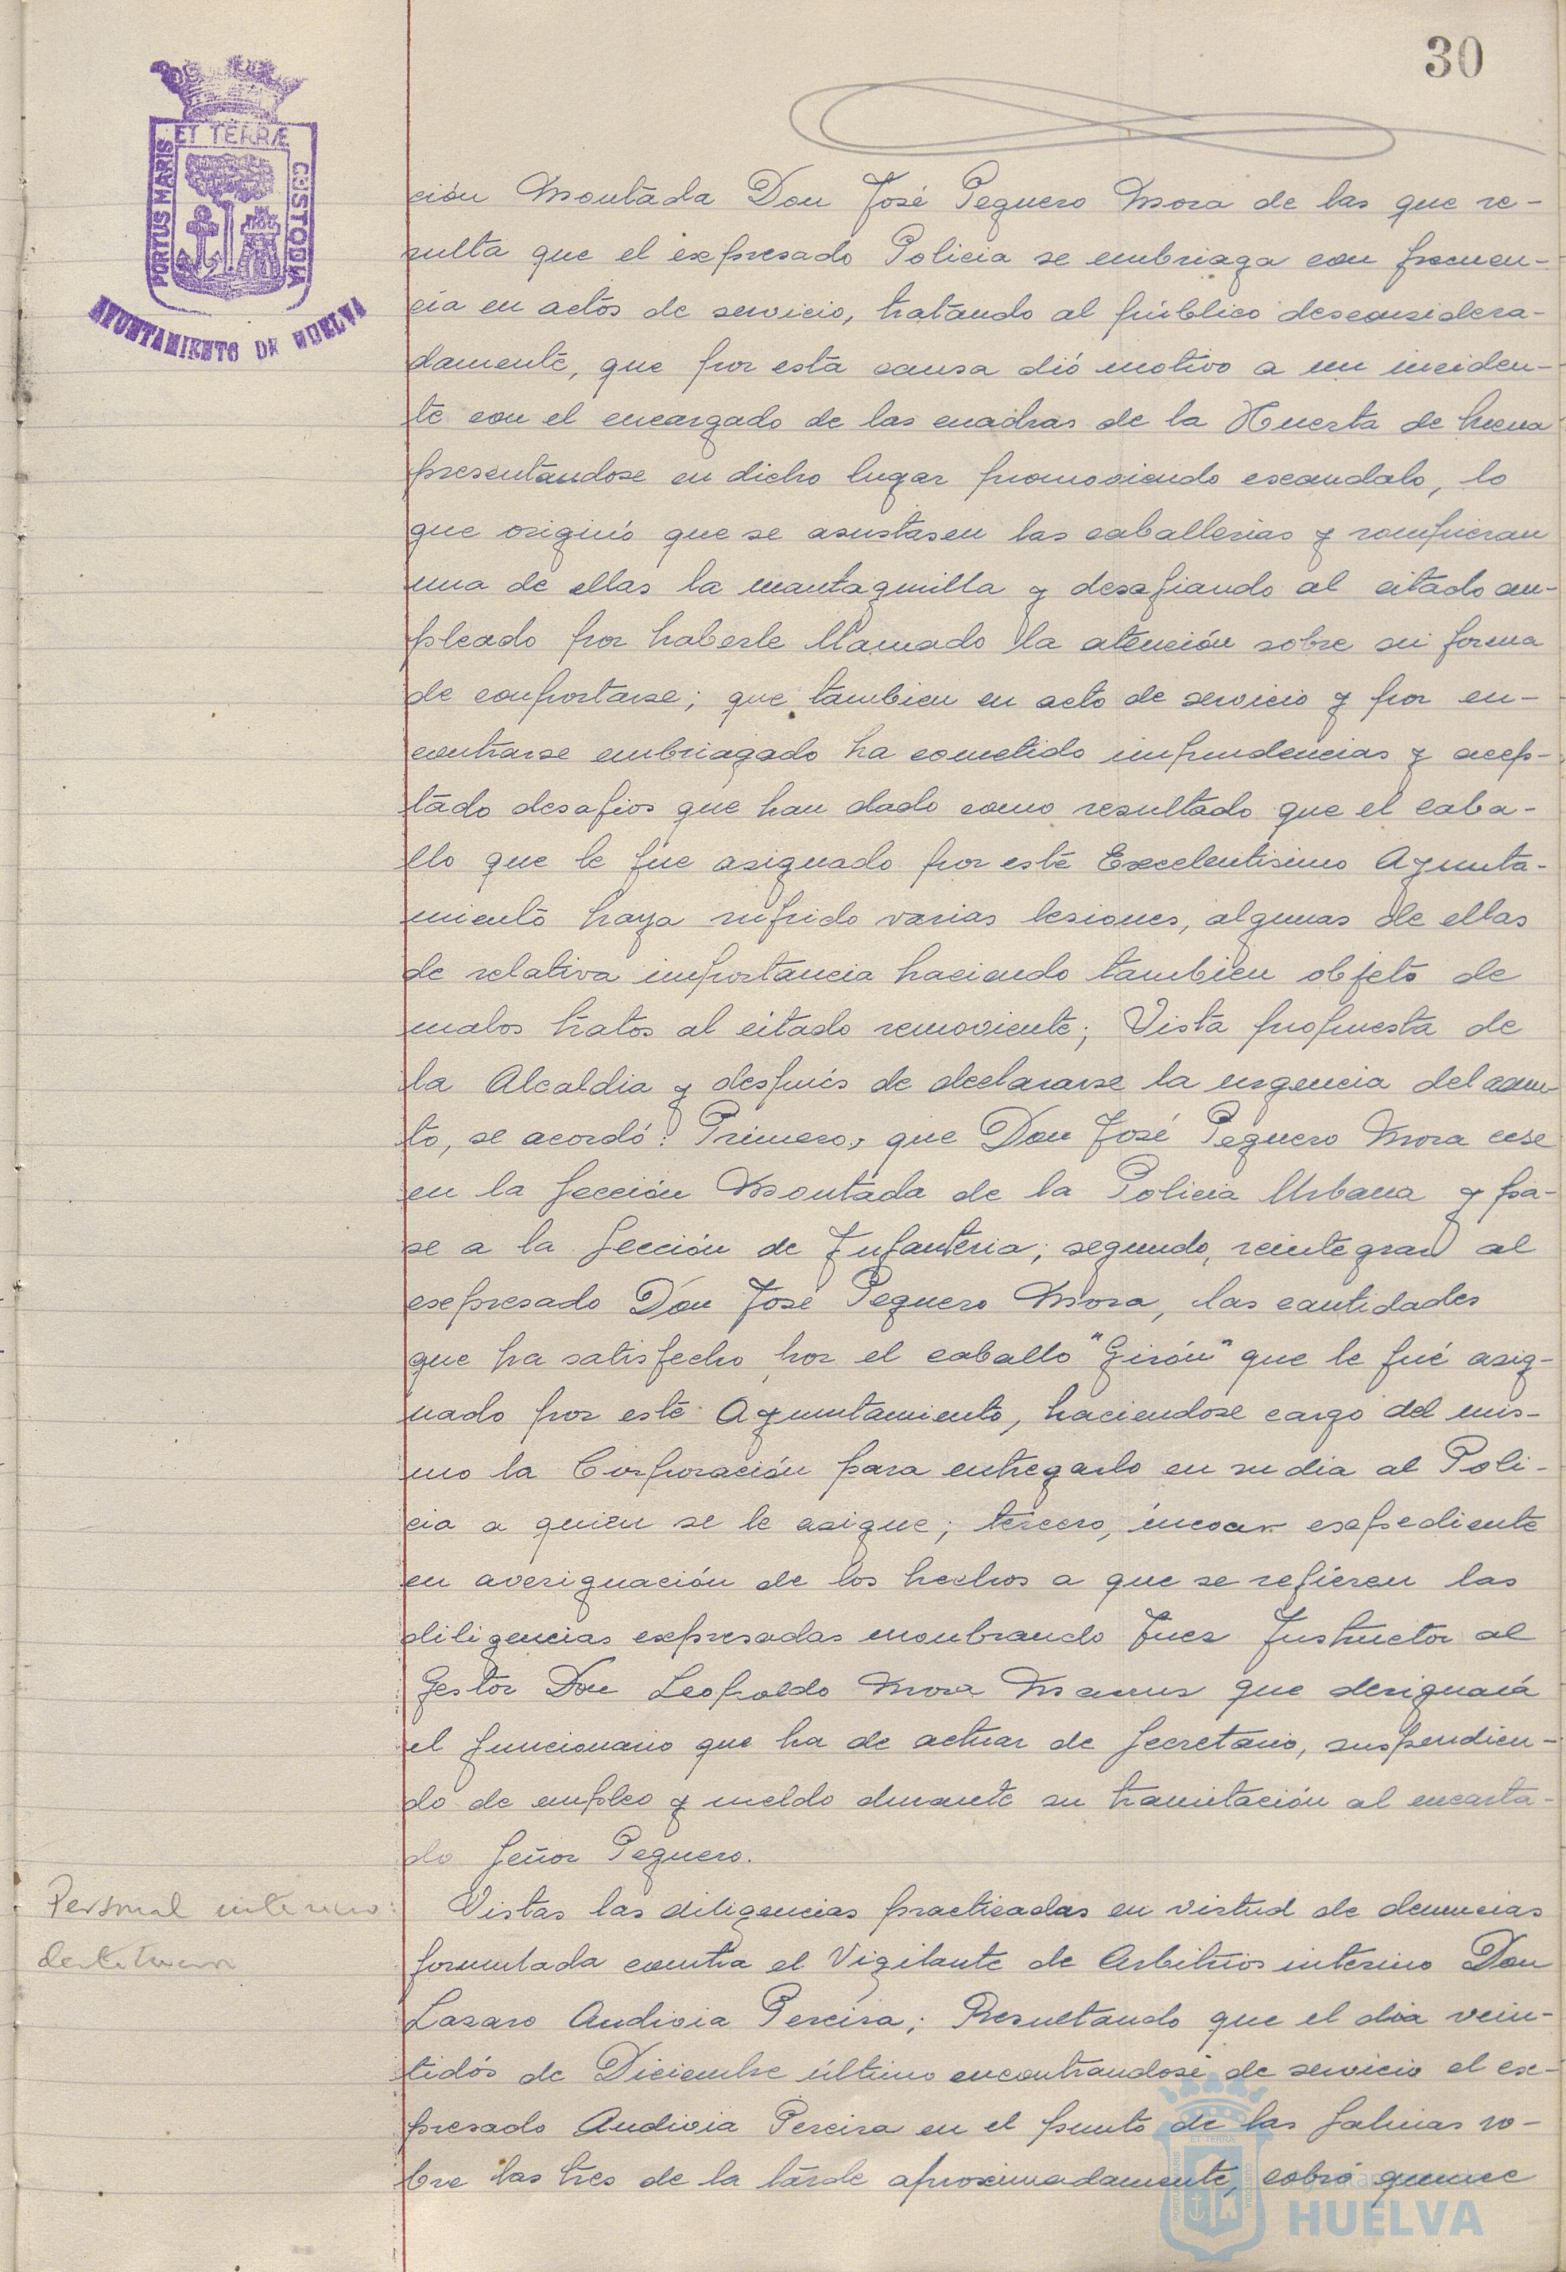 30
ET TERRÆ
PORTUS MARIS
CUSTODIA
AYUNTAMIENTO DE HUELVA
ción Montada Don José Peguero Mora de las que re-
sulta que el expresado Policia se embriaga con frecuen-
cia en actos de servicio, tratando al público desconsidera-
damente, que por esta causa dió motivo a un inciden-
te con el encargado de las cuadras de la Huerta de Mena
presentandose en dicho lugar promoviendo escandalo, lo
que originó que se asustasen las caballerias y rompieran
una de ellas la mantaquilla y desafiando al citado em-
pleado por haberle llamado la atención sobre su forma
de comportarse; que tambien en acto de servicio y por en-
contrarse embriagado ha cometido imprudencias y acep-
tado desafios que han dado como resultado que el caba-
llo que le fue asignado por este Excelentisimo Ayunta-
miento haya sufrido varias lesiones, algunas de ellas
de relativa importancia haciendo tambien objeto de
malos tratos al citado removiente; Vista propuesta de
la Alcaldia y después de declararse la urgencia del asun-
to, se acordó: Primero, que Don José Peguero Mora cese
en la Sección Montada de la Policia Urbana y pa-
se a la Sección de Infanteria; segundo, reintegrar al
expresado Don José Peguero Mora, las cantidades
que ha satisfecho por el caballo "Girón" que le fué asig-
nado por este Ayuntamiento, haciendose cargo del mis-
mo la Corporación para entregarlo en su dia al Poli-
cia a quien se le asigne; tercero, incoar expediente
en averiguación de los hechos a que se refieren las
diligencias expresadas nombrando Juez Instructor al
Gestor Don Leopoldo Mora que designará
el funcionario que ha de actuar de Secretario, suspendien-
do de empleo y sueldo durante su tramitación al encarta-
do Señor Peguero.
Personal interino:
destitucion
Vistas las diligencias practicadas en virtud de denuncias
formulada contra el Vigilante de Arbitrios interino Don
Lazaro Audivia Pereira; Resultando que el dia vein-
tidós de Diciembre último encontrandose de servicio el ex-
presado Audivia Pereira en el punto de las Salinas so-
bre las tres de la tarde aproximadamente, cobró quince
HUELVA